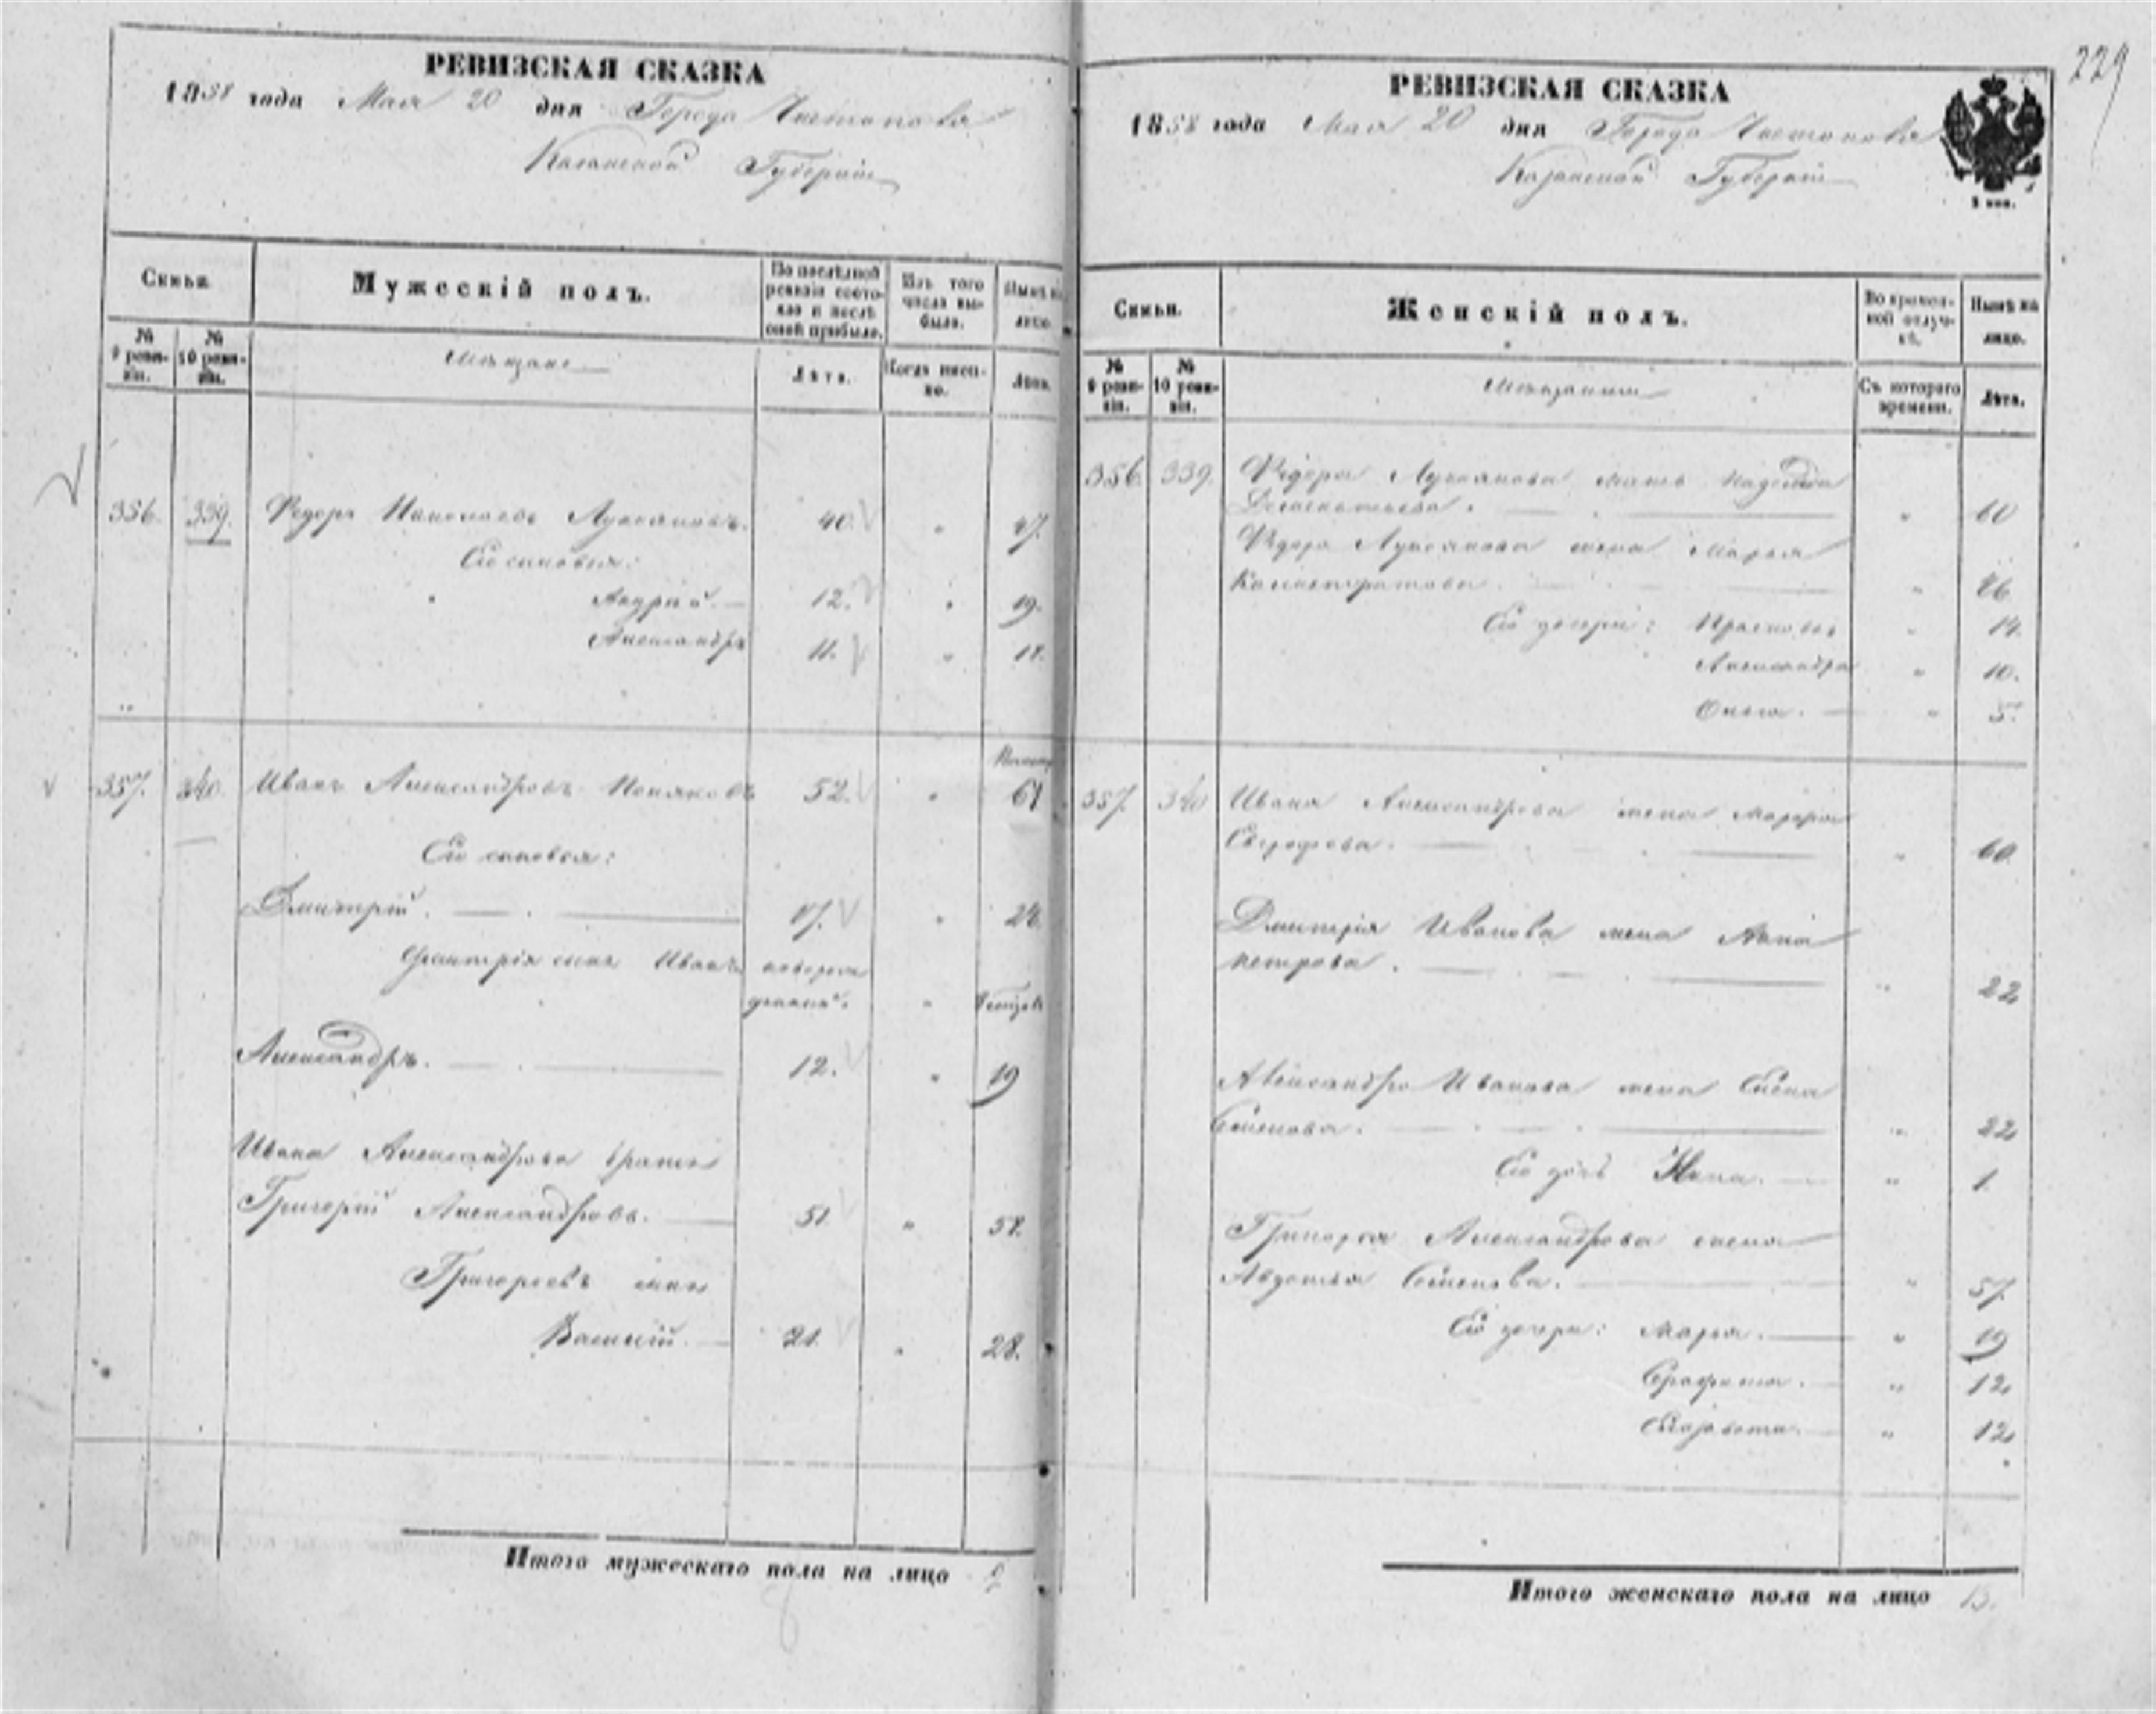 229
РЕВИЗСКАЯ СКАЗКА
1858 года Мая 20 дня Города Чистополя
Казанской Губернии
Семьи.
Мужескій полъ.
По послѣдней ревизіи состояло и послѣ оной прибыло.
Изъ того числа выбыло.
Нынѣ на лицо.
№ 9 ревизіи.
№ 10 ревизіи.
Мѣщане
Лѣта.
Когда именно.
Лѣта.
356. 339. Федоръ Лукояновъ. 40. " 47.
Его сыновья:
Андрей. 12. " 19.
Александръ 11. " 18.
357. 340. Иванъ Александровъ 52. "
Его сыновья:
Дмитрій. 17. " 24.
Дмитрія сынъ Иванъ новорож
денный. "
Александръ. 12. " 19
Ивана Александрова братъ
Григорій Александровъ. 51. " 58.
Григорьевъ сынъ
Василій. 21. " 28.
Итого мужескаго пола на лицо
РЕВИЗСКАЯ СКАЗКА
1858 года Мая 20 дня Города Чистополя
Казанской Губернии
Семьи.
Женскій полъ.
Во временной отлучкѣ.
Нынѣ на лицо.
№ 9 ревизіи.
№ 10 ревизіи.
Мѣщанки
Съ котораго времени.
Лѣта.
356. 339. Федора Лукоянова мать Надежда
" 60
Федора Лукоянова жена Марья
Калистратова. " 46
Его дочери: Прасковья " 14.
Александра " 10.
Ольга. " 5.
357. 340 Ивана Александрова жена
" 60.
Дмитрія Иванова жена Анна
Петрова. " 22
Александра Иванова жена Елена
Семенова. " 22
Его дочь Анна. " 1.
Григорья Александрова жена
Авдотья Семенова. " 57.
Его дочери: Марья. " 19
Серафима. " 12
Елизавета. " 12
Итого женскаго пола на лицо 13.